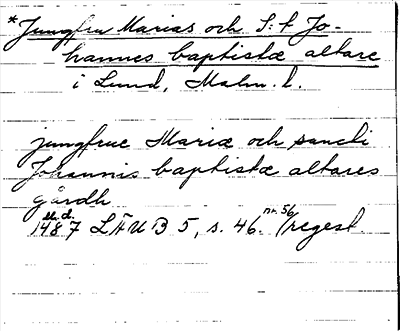 *Jungfru Marias och S:t Jo-
hannes baptistæ altare
i Lund, Malm. l.
jungfrue Mariæ och sancti
Johannis baptistæ altares
gårdh
u.d.
1487 LÄUB 5, s. 46. nr. 56 /regest.